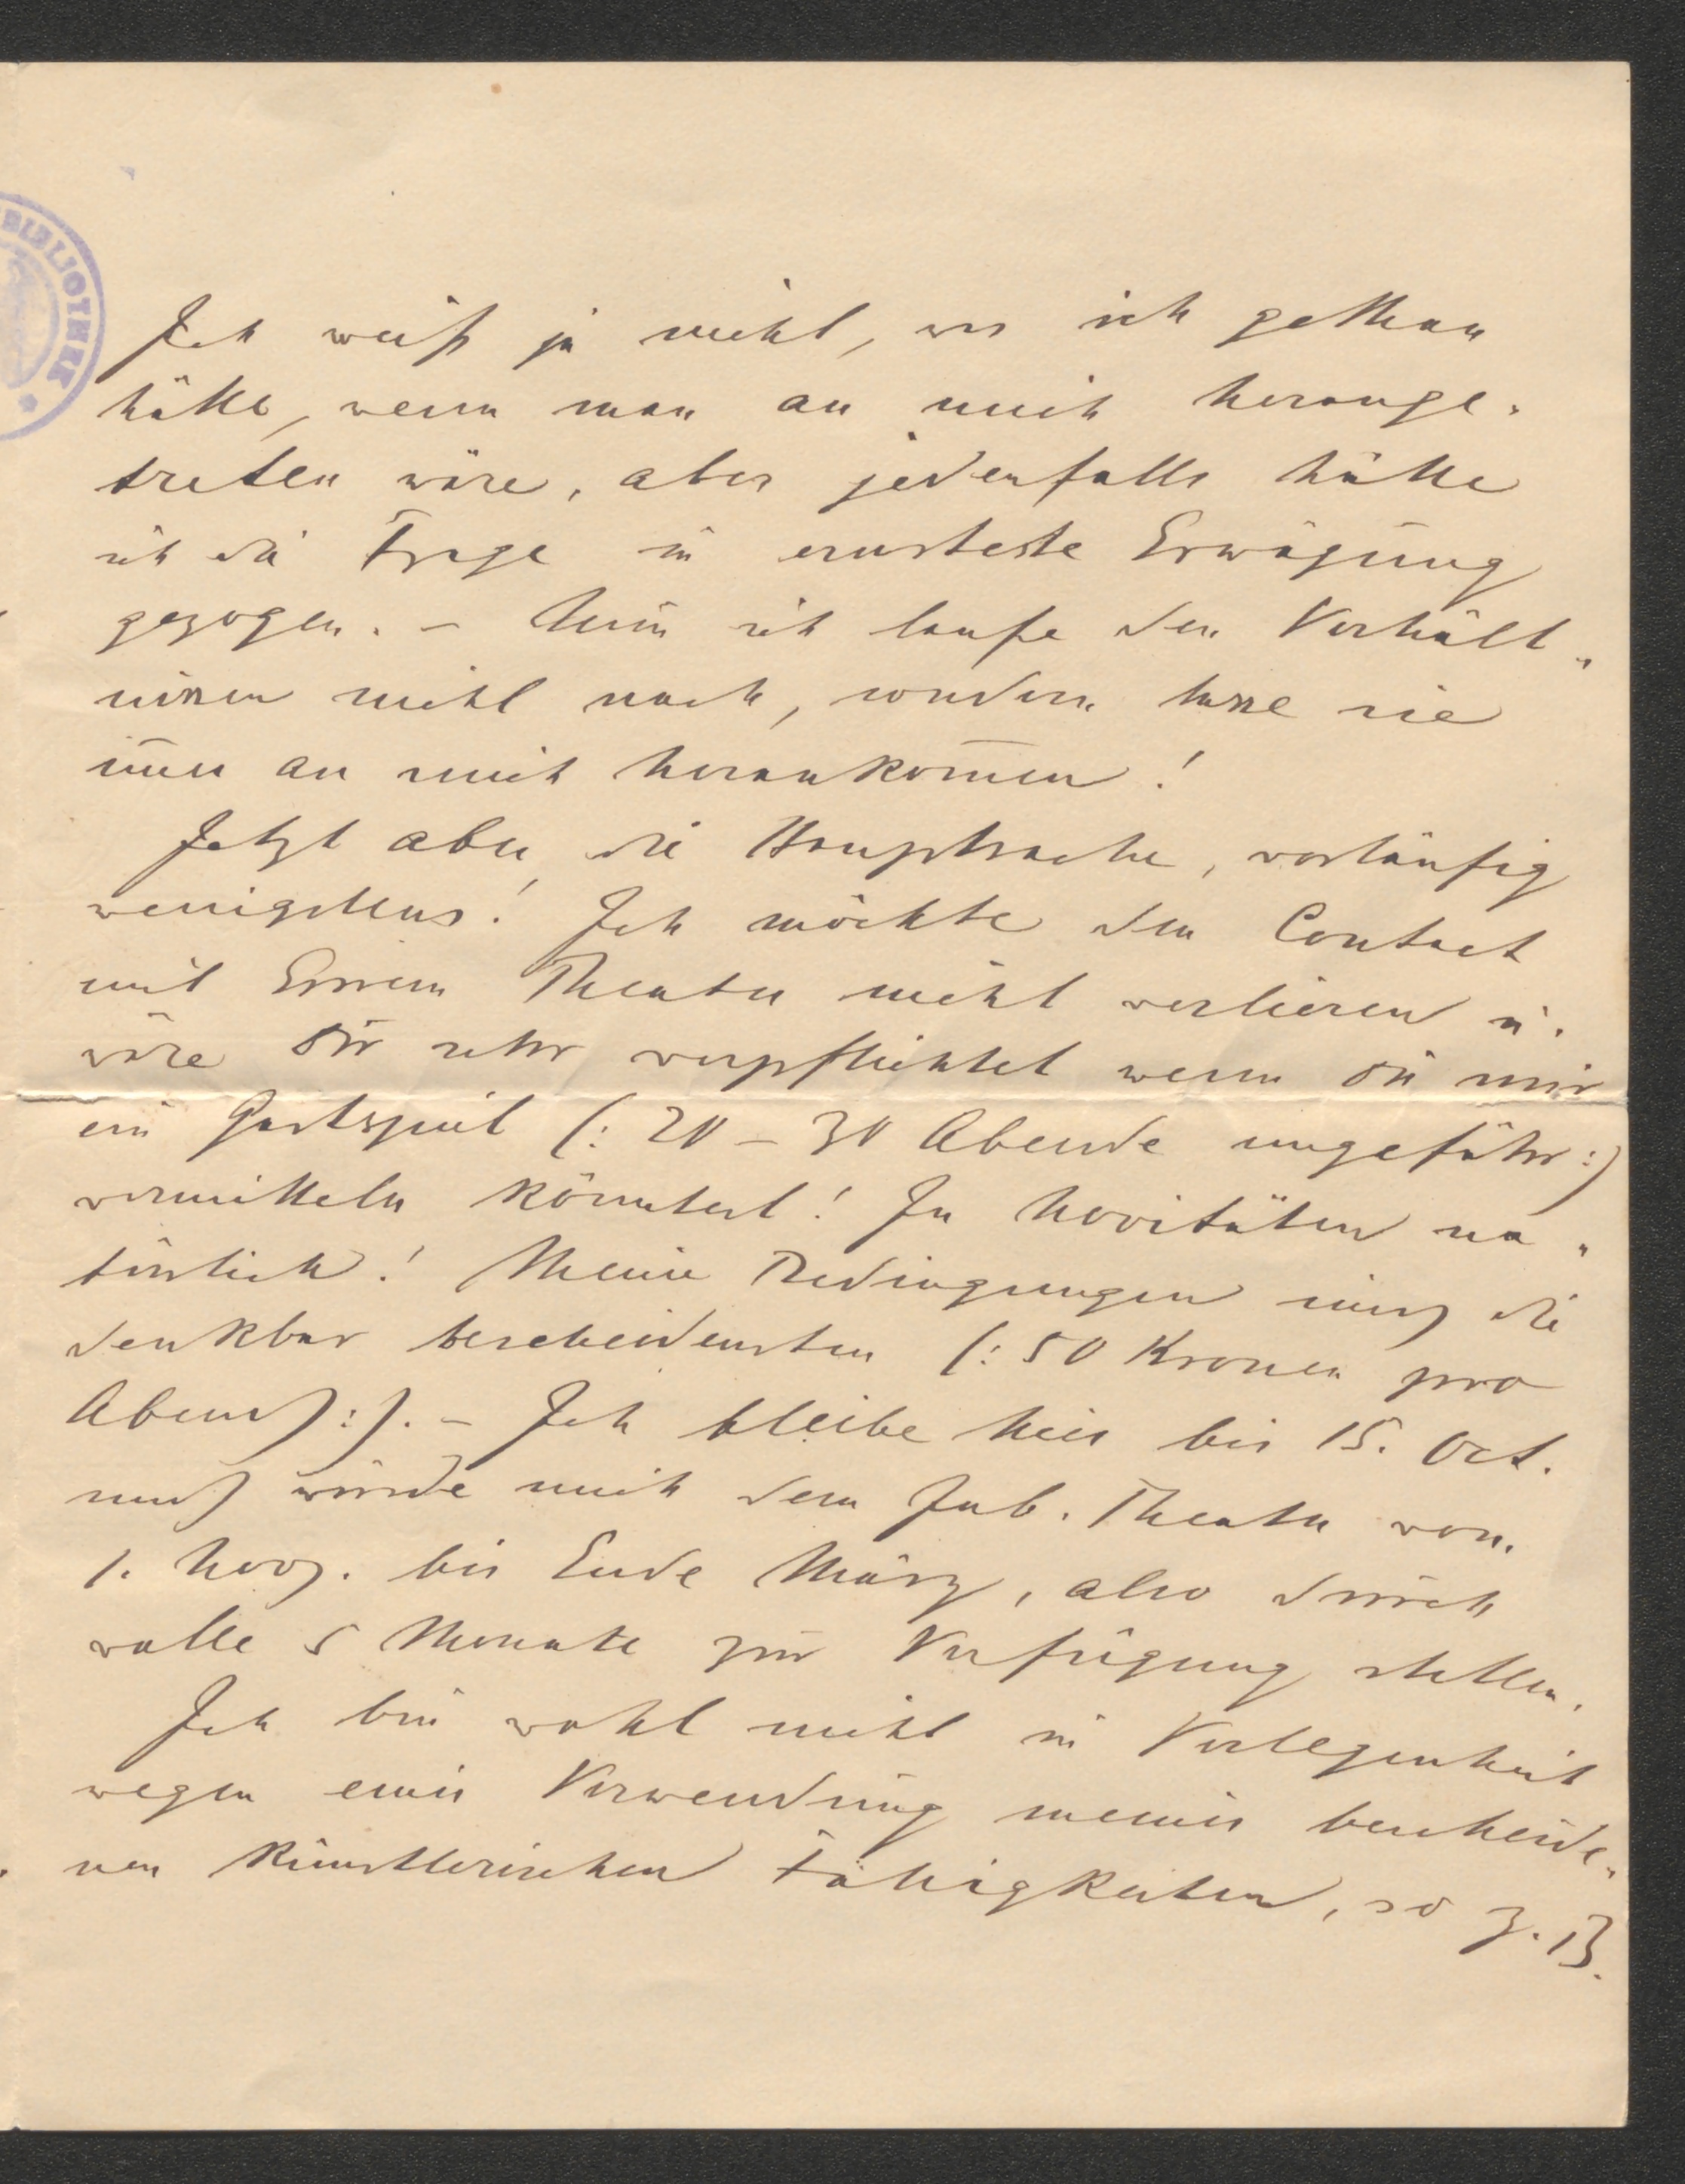 BIBLIOTHEK
Ich weiß ja nicht, was ich gethan
hätte, wenn man an mich herange-
treten wäre, aber jedenfalls hätte
ich die Frage in ernsteste Erwägung
gezogen. – Nun ich laufe den Verhält-
nissen nicht nach, sondern lasse sie
im̄er an mich herankom̄en!
Jetzt aber die Hauptsache, vorläufig
wenigstens! Ich möchte den Contact
mit Eurem Theater nicht verlieren u.
wäre Dir sehr verpflichtet wenn Du mir
ein Gastspiel (: 20 – 30 Abende ungefähr :)
vermitteln könntest! In Novitäten na-
türlich! Meine Bedingungen sind die
denkbar bescheidensten (: 50 Kronen pro
Abend :). – Ich bleibe hier bis 15. Oct.
und würde mich dem Jub. Theater von.
1. Nov. bis Ende März, also durch
volle 5 Monate zur Verfügung stellen.
Ich bin wohl nicht in Verlegenheit
wegen einer Verwendung meiner bescheide-
nen künstlerischen Fähigkeiten, so z. B.